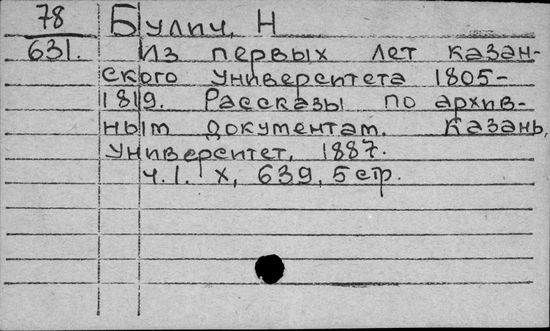 78 Булич, Н
631. Из первых лет казан-
ского университета 1805-
1819. Рассказы по архив-
ным документам. Казань,
Университет, 1887.
ч. I. X, 639, 5 стр.